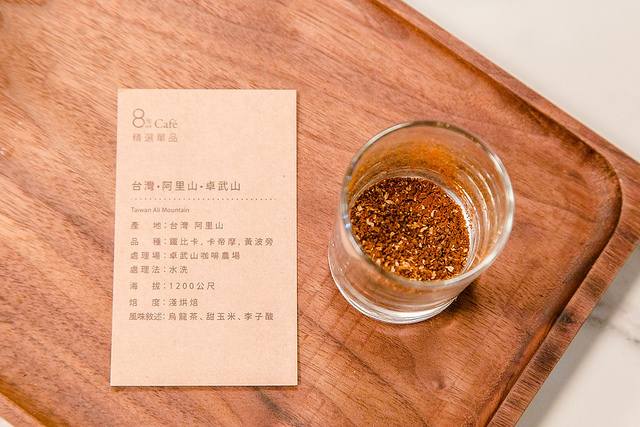 8% Café
精選單品
台灣・阿里山・卓武山
Taiwan Ali Mountain
產 地：台灣 阿里山
品 種：鐵比卡、卡帝摩、黃波旁
處理場：卓武山咖啡農場
處理法：水洗
海 拔：1200公尺
焙 度：淺烘焙
風味敘述：烏龍茶、甜玉米、李子酸